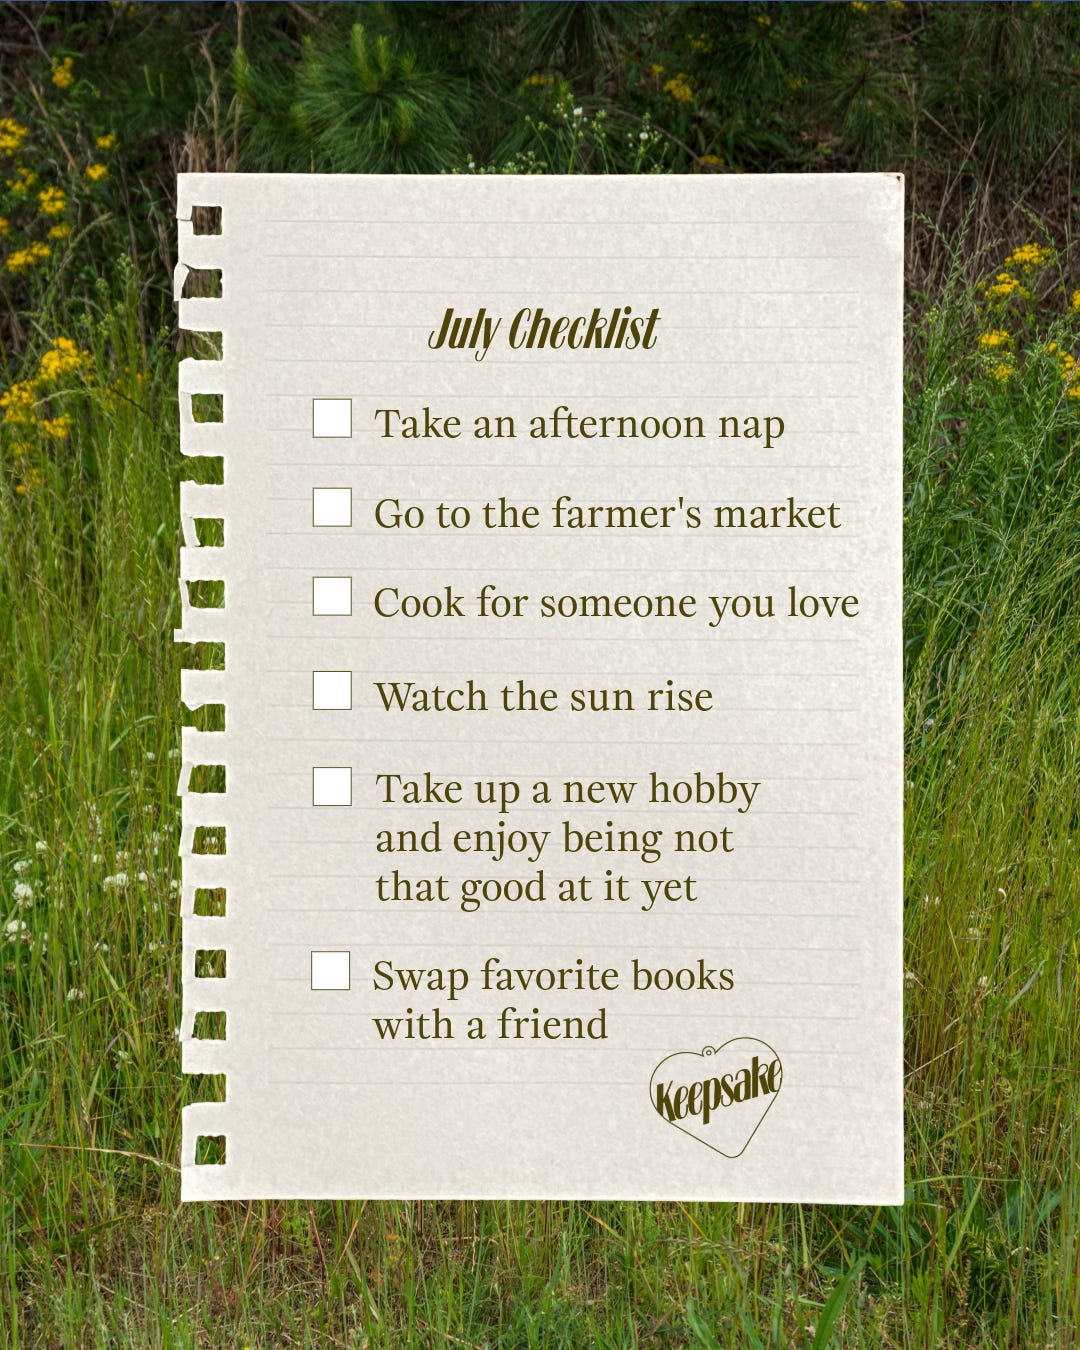 July Checklist
Take an afternoon nap
Go to the farmer's market
Cook for someone you love
Watch the sun rise
Take up a new hobby
and enjoy being not
that good at it yet
Swap favorite books
with a friend
Keepsake